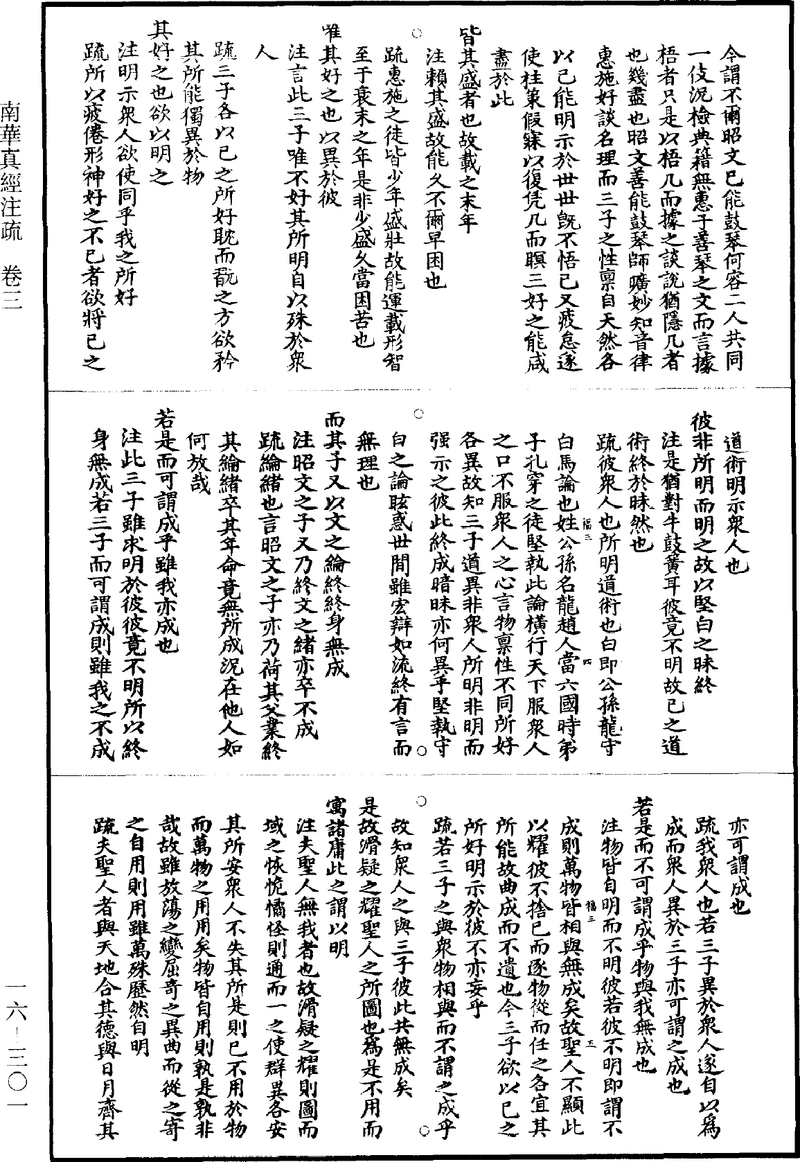 南華真經注疏　卷三
今謂不爾昭文已能鼓琴何容二人共同
一伎況檢典籍無惠子善琴之文而言據
梧者只是以梧几而據之談説猶隱几者
也幾盡也昭文善能鼓琴師曠妙知音律
惠施好談名理而三子之性禀自天然各
以己能明示於世世既不悟己又疲怠遂
使柱策假寐以復凭几而瞑三好之能咸
盡於此
皆其盛者也故載之末年
注賴其盛故能久不爾早困也
疏惠施之徒皆少年盛壯故能運載形智
至于衰末之年是非少盛久當困苦也
唯其好之也以異於彼
注言此三子唯不好其所明自以殊於衆
人
疏三子各以己之所好耽而翫之方欲矜
其所能獨異於物
其好之也欲以明之
注明示衆人欲使同乎我之所好
疏所以疲倦形神好之不已者欲將已之
道術明示衆人也
彼非所明而明之故以堅白之昧終
注是猶對牛鼓簧耳彼竟不明故已之道
術終於昧然也
疏彼衆人也所明道術也白即公孫龍守
白馬論也姓公孫名龍趙人當六國時弟
子孔穿之徒堅執此論橫行天下服衆人
之口不服衆人之心言物禀性不同所好
各異故知三子道異非衆人所明非明而
强示之彼此終成暗昧亦何異乎堅執守
白之論眩惑世間雖宏辯如流終有言而
無理也
而其子又以文之綸終終身無成
注昭文之子又乃終文之緒亦卒不成
疏綸緒也言昭文之子亦乃荷其父業終
其綸緒卒其年命竟無所成況在他人如
何放哉
若是而可謂成乎雖我亦成也
注此三子雖求明於彼彼竟不明所以終
身無成若三子而可謂成則雖我之不成
亦可謂成也
疏我衆人也若三子異於衆人遂自以爲
成而衆人異於三子亦可謂之成也
若是而不可謂成乎物與我無成也
注物皆自明而不明彼若彼不明即謂不
成則萬物皆相與無成矣故聖人不顯此
以耀彼不捨已而逐物從而任之各宜其
所能故曲成而不遺也今三子欲以已之
所好明示於彼不亦妄乎
疏若三子之與衆物相與而不謂之成乎
故知衆人之與三子彼此共無成矣
是故滑疑之耀聖人之所圖也爲是不用而
寓諸庸此之謂以明
注夫聖人無我者也故滑疑之耀則圖而
域之恢恑憰怪則通而一之使群異各安
其所安衆人不失其所是則已不用於物
而萬物之用用矣物皆自用則孰是孰非
哉故雖放蕩之變屈奇之異曲而從之寄
之自用則用雖萬殊歷然自明
疏夫聖人者與天地合其德與日月齊其
一六－三〇一